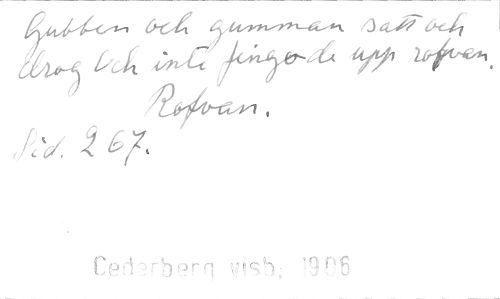 Gubben och gumman satt och
drog och inte fingo de upp rofvan.
Rofvan.
Sid. 267.
Cederberg visb; 1906